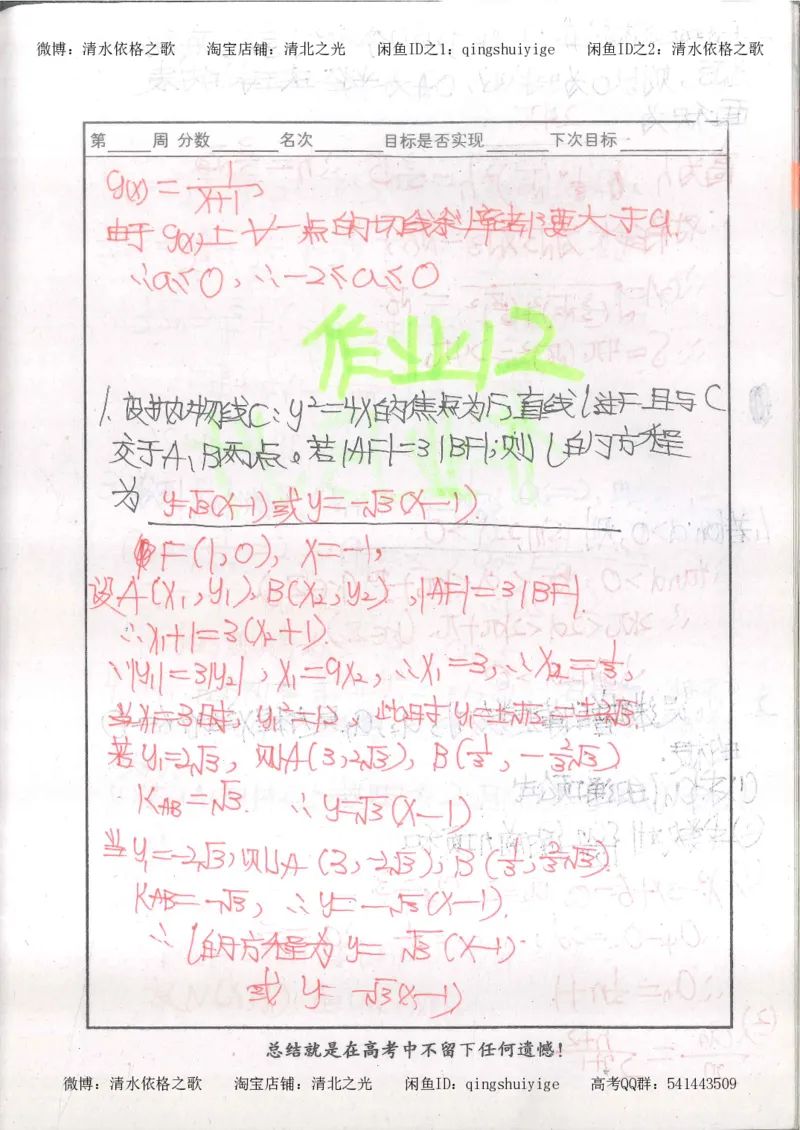 微博：清水依格之歌 淘宝店铺：清北之光 闲鱼ID之1：qingshuiyige 闲鱼ID之2：清水依格之歌
第____周 分数______名次______目标是否实现______下次目标__________
g(x)=1/(x+1),
由于g(x)上∀一点的切线斜率都要大于a,
∴a≤0, ∴-2≤a≤0
作业12
1. 设抛物线C: y²=4x的焦点为F,直线l过F且与C
交于A,B两点。若|AF|=3|BF|,则l的方程
为 y=√3(x-1)或y=-√3(x-1)
F(1,0), x=-1,
设A(x₁,y₁),B(x₂,y₂),|AF|=3|BF|.
∴x₁+1=3(x₂+1).
∵|y₁|=3|y₂|, x₁=9x₂, ∴x₁=3, ∴x₂=1/3,
当x₁=3时, y₁²=12, 此时y₁=±√12=±2√3.
若y₁=2√3, 则A(3,2√3), B(1/3, -2/3√3)
K_AB=√3. ∴y=√3(x-1)
当y₁=-2√3,则A(3,-2√3), B(1/3, 2/3√3).
K_AB=-√3, ∴y=-√3(x-1).
∴l的方程为y=√3(x-1).
或y=-√3(x-1)
总结就是在高考中不留下任何遗憾！
微博：清水依格之歌 淘宝店铺：清北之光 闲鱼ID：qingshuiyige 高考QQ群：541443509